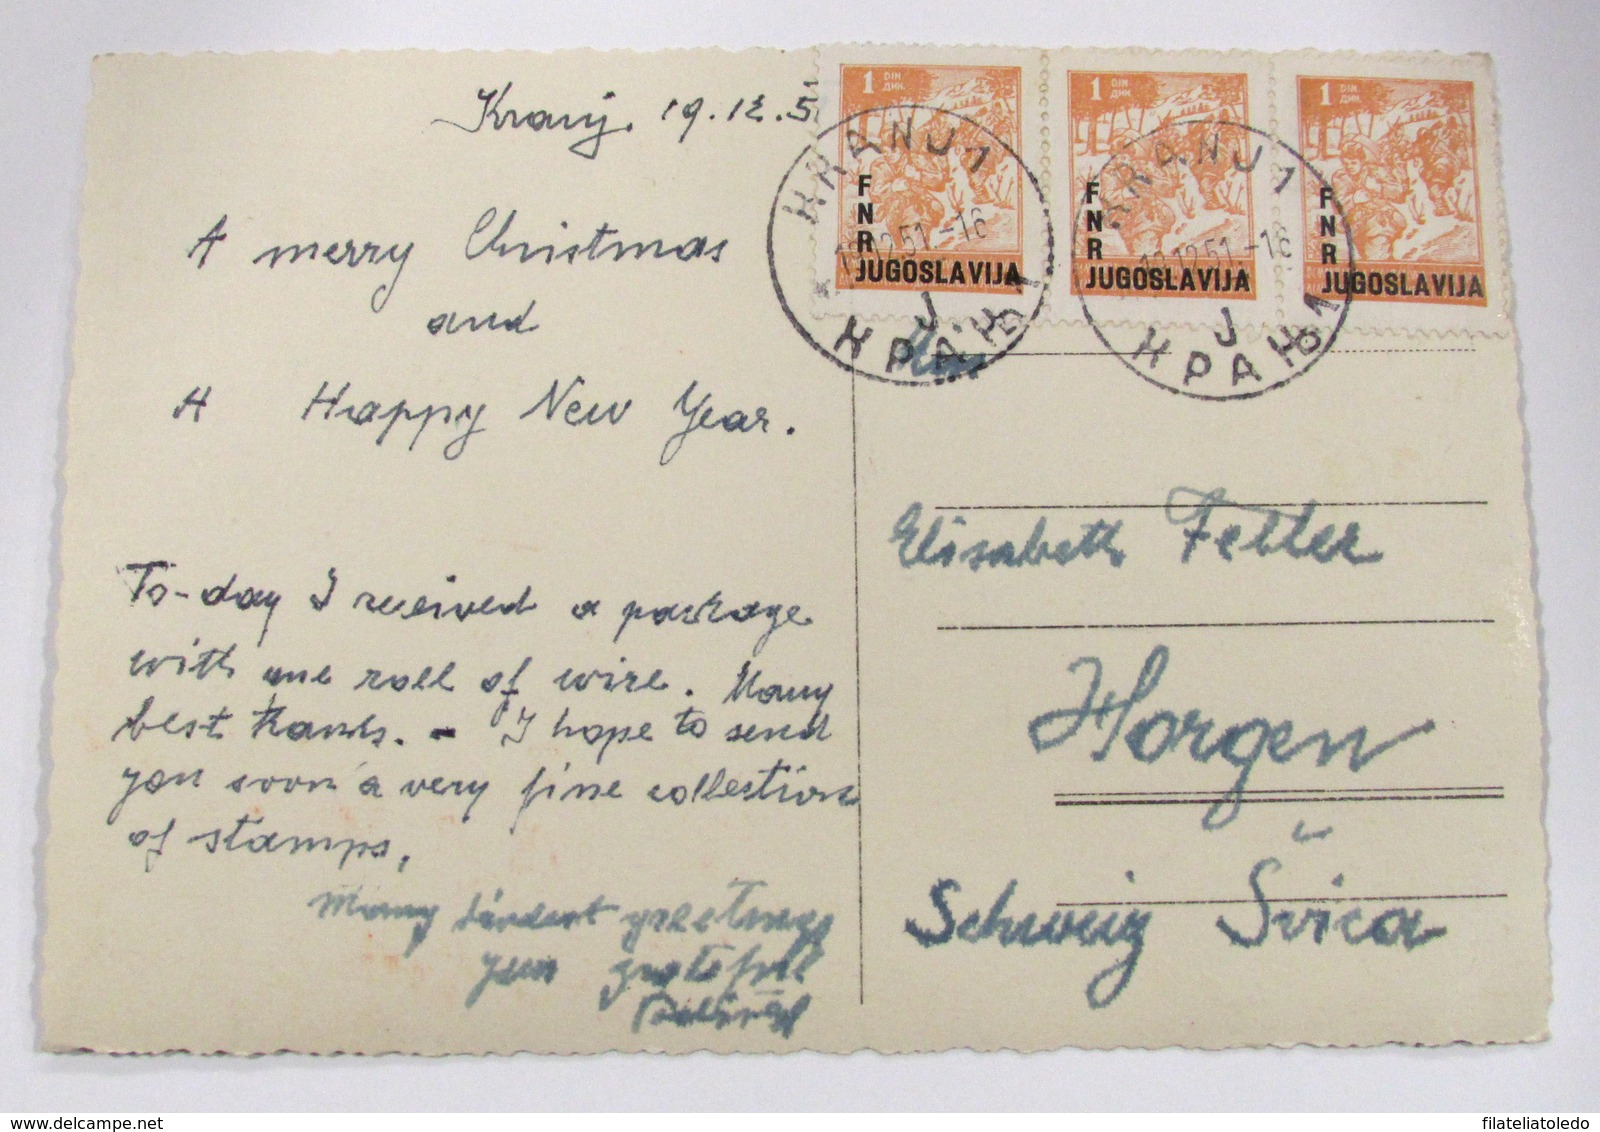 Kranj, 19.12.5
A merry Christmas
and
A Happy New Year.
To-day I received a package
with one roll of wire. Many
best thanks. - I hope to send
you soon a very fine collection
of stamps,
Many greetings
your grateful
1 DIN
ДИН.
FNR
JUGOSLAVIJA
1 DIN
ДИН.
FNR
JUGOSLAVIJA
1 DIN
ДИН.
FNR
JUGOSLAVIJA
KRANJ 1
12.51.-16
J
КРАЊ 1
KRANJ 1
12.51.-16
J
КРАЊ 1
Elisabeth Feller
Horgen
Schweiz Švica
delcampe.net
filateliatoledo